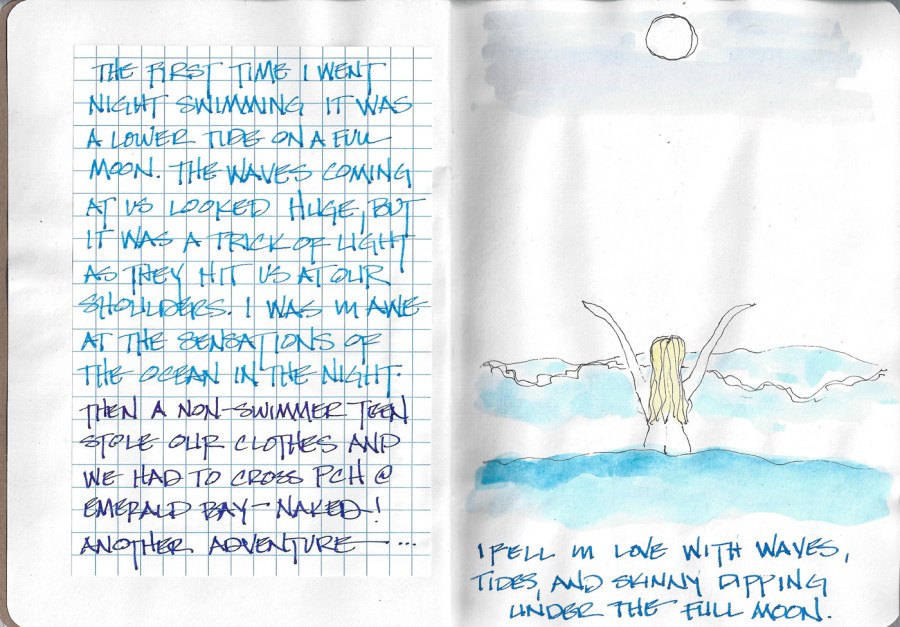 THE FIRST TIME I WENT
NIGHT SWIMMING IT WAS
A LOWER TIDE ON A FULL
MOON. THE WAVES COMING
AT US LOOKED HUGE, BUT
IT WAS A TRICK OF LIGHT
AS THEY HIT US AT OUR
SHOULDERS. I WAS IN AWE
AT THE SENSATIONS OF
THE OCEAN IN THE NIGHT.
THEN A NON-SWIMMER TEEN
STOLE OUR CLOTHES AND
WE HAD TO CROSS PCH @
EMERALD BAY - NAKED!
ANOTHER ADVENTURE — ...
I FELL IN LOVE WITH WAVES,
TIDES, AND SKINNY DIPPING
UNDER THE FULL MOON.